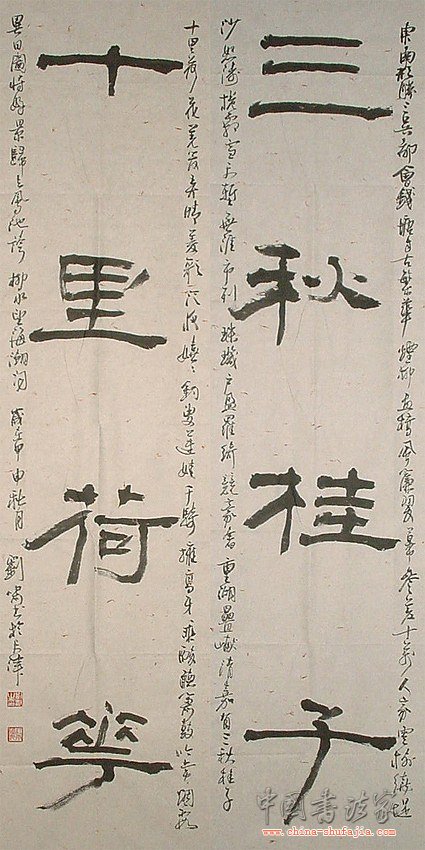 東南形勝三吳都會錢塘自古繁華煙柳畫橋風簾翠幕參差十萬人家雲樹繞堤
三秋桂子
沙怒濤捲霜雪天塹無涯市列珠璣戶盈羅綺競豪奢重湖疊巘清嘉有三秋桂子
十里荷花羌管弄晴菱歌泛夜嬉嬉釣叟蓮娃千騎擁高牙乘醉聽簫鼓吟賞煙霞
十里荷花
異日圖將好景歸去鳳池誇 柳永望海潮詞 歲甲申秋月 劉
中国书法家
www.china-shufajia.com